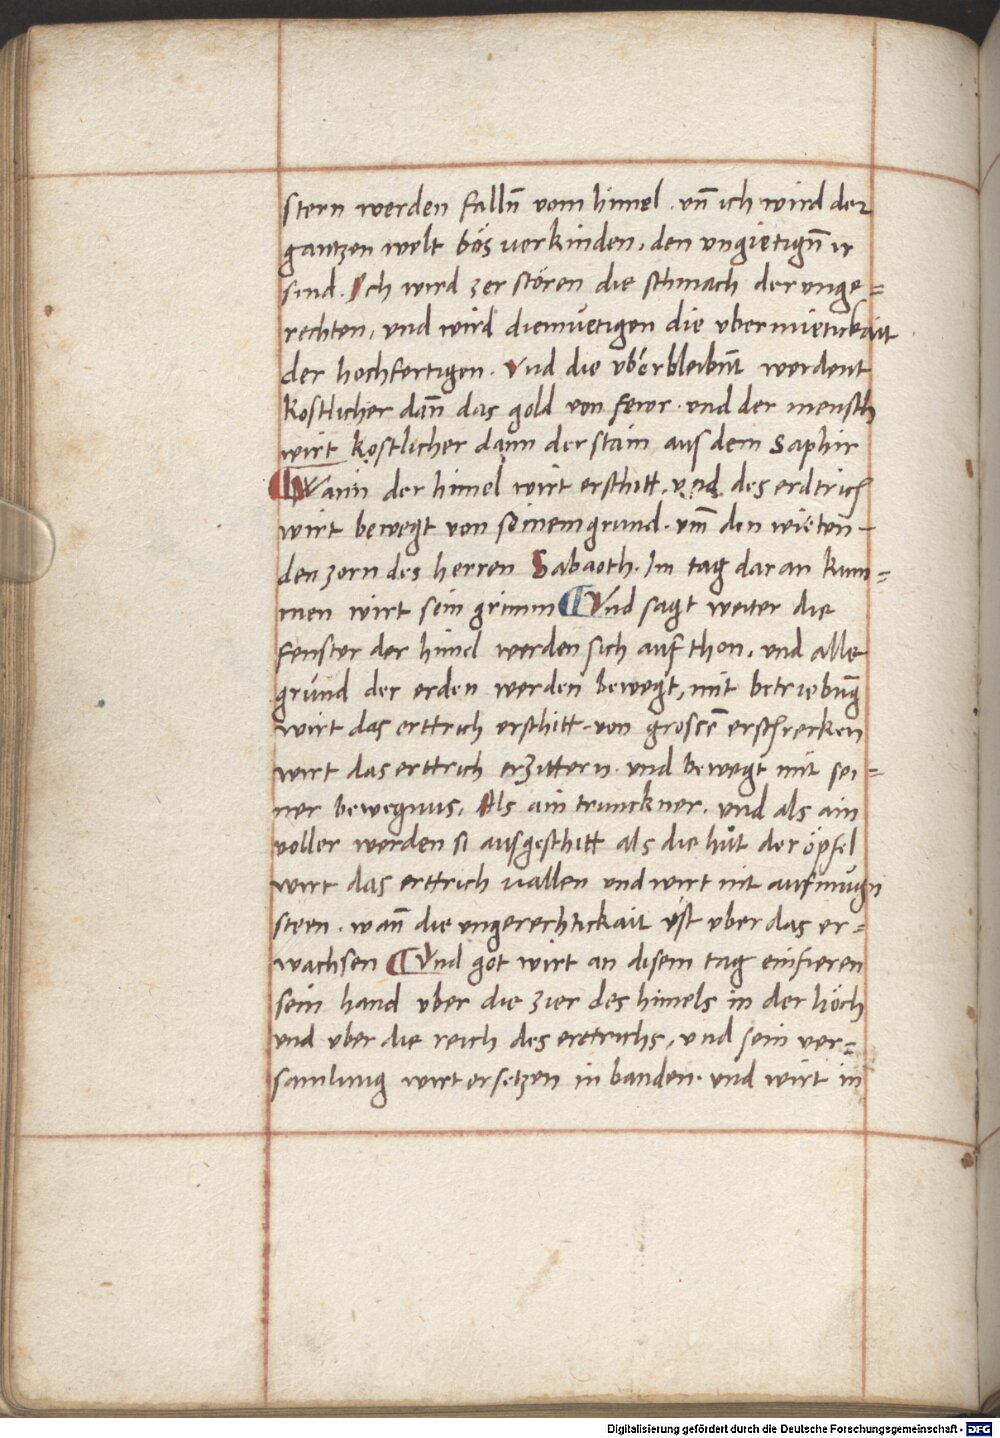 stern werden falln̄ vom himel . vn̄ ich wird der
gantzen welt bös verkinden, den vngietign̄ ir
sind. Ich wird zer stören die schmach der unge=
rechten, und wird diemüetigen die vbermietickait
der hochfertigen. Und die vberbleibn̄t werdent
kostlicher dan̄ das gold von fewr. vnd der mensch
wirt kostlicher dann der stain aus dem Saphir
¶ Wann der himel wirt erschitt. vnd des erdtrich
wirt bewegt von seinem grund. vm̄ den wieten-
den zorn des herren Sabaoth. Im tag daran kum=
men wirt sein grimm ¶ Und sagt weiter die
fenster der himel werden sich auf thon. und alle
gründ der erden werden bewegt, mit betriebūg
wirt das erttrich erschitt. von grossē erschrecken
wirt das erttrich erzittern. und bewegt mit sei=
ner bewegnus. Als ain trunckner. und als ain
voller werden si ausgeschitt als die hüt der öpfel
wirt das erttrich vallen und wirt nit aufmügn
steen. wan̄ die ungerechtickait ist vber das er=
wachsen ¶ Und got wirt an disem tag einfieren
sein hand vber die zier des himels in der höch
und vber die reich des erttrichs, und sein ver=
samlung wirt ersetzen in banden. und wirt in
Digitalisierung gefördert durch die Deutsche Forschungsgemeinschaft - DFG